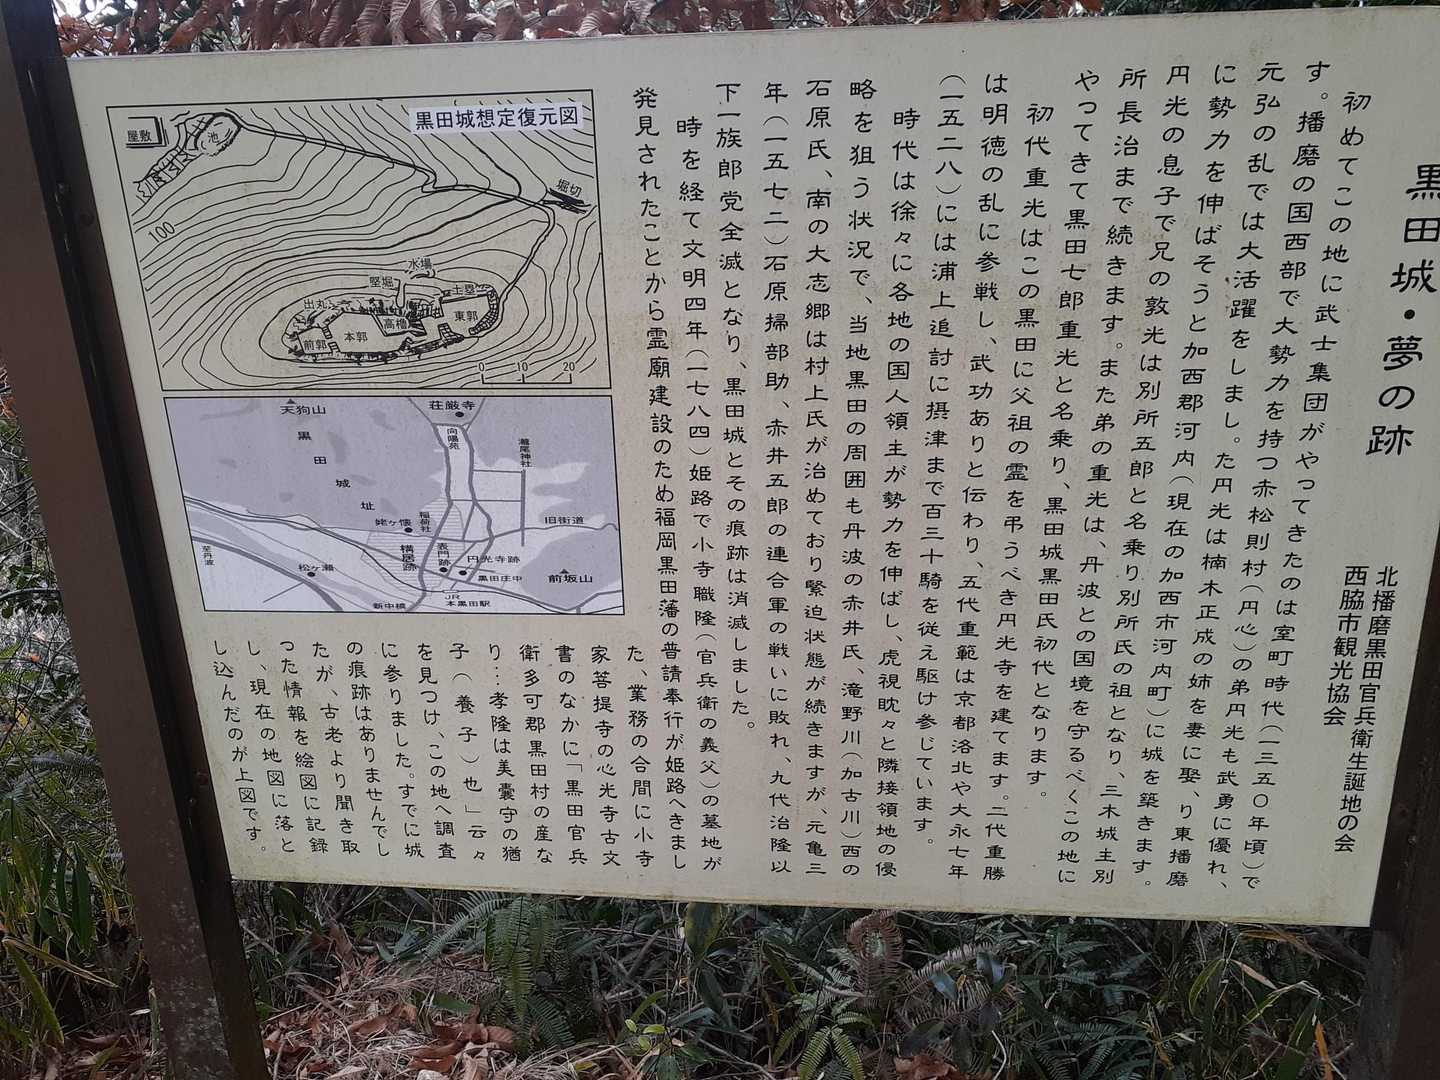 黒田城・夢の跡
北播磨黒田官兵衛生誕地の会
西脇市観光協会
初めてこの地に武士集団がやってきたのは室町時代(一三五〇年頃)で
す。播磨の国西部で大勢力を持つ赤松則村(円心)の弟円光も武勇に優れ、
元弘の乱では大活躍をしました。た円光は楠木正成の姉を妻に娶、り東播磨
に勢力を伸ばそうと加西郡河内(現在の加西市河内町)に城を築きます。
円光の息子で兄の敦光は別所五郎と名乗り別所氏の祖となり、三木城主別
所長治まで続きます。また弟の重光は、丹波との国境を守るべくこの地に
やってきて黒田七郎重光と名乗り、黒田城黒田氏初代となります。
初代重光はこの黒田に父祖の霊を弔うべき円光寺を建てます。二代重勝
は明徳の乱に参戦し、武功ありと伝わり、五代重範は京都洛北や大永七年
(一五二八)には浦上追討に摂津まで百三十騎を従え駆け参じています。
時代は徐々に各地の国人領主が勢力を伸ばし、虎視眈々と隣接領地の侵
略を狙う状況で、当地黒田の周囲も丹波の赤井氏、滝野川(加古川)西の
石原氏、南の大志郷は村上氏が治めており緊迫状態が続きますが、元亀三
年(一五七二)石原掃部助、赤井五郎の連合軍の戦いに敗れ、九代治隆以
下一族郎党全滅となり、黒田城とその痕跡は消滅しました。
時を経て文明四年(一七八四)姫路で小寺職隆(官兵衛の義父)の墓地が
発見されたことから霊廟建設のため福岡黒田藩の普請奉行が姫路へきまし
た、業務の合間に小寺
家菩提寺の心光寺古文
書のなかに「黒田官兵
衛多可郡黒田村の産な
り…孝隆は美嚢守の猶
子(養子)也」云々
を見つけ、この地へ調査
に参りました。すでに城
の痕跡はありませんでし
たが、古老より聞き取
った情報を絵図に記録
し、現在の地図に落と
し込んだのが上図です。
黒田城想定復元図
屋敷
池
堀切
100
水場
堅堀
土塁
出丸
高櫓
東郭
本郭
前郭
0 10 20
天狗山
荘厳寺
向陽苑
瀧尾神社
黒田城址
稲荷社
姥ヶ懐
旧街道
横居跡
表門跡
円光寺跡
至丹波
松ヶ瀬
黒田庄中
前坂山
JR
本黒田駅
新中橋